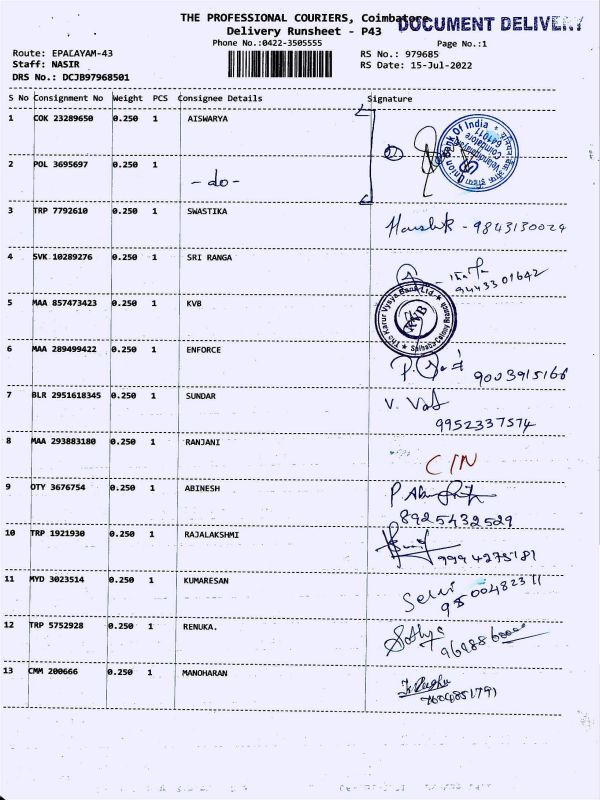 THE PROFESSIONAL COURIERS, Coimbatore
DOCUMENT DELIVERY
Delivery Runsheet - P43
Phone No.:0422-3505555
Page No.:1
Route: EPALAYAM-43
RS No.: 979685
Staff: NASIR
RS Date: 15-Jul-2022
DRS No.: DCJB97968501
S No Consignment No Weight PCS Consignee Details Signature
1 COK 23289650 0.250 1 AISWARYA
Union Bank Of India
Coimbatore
641011
2 POL 3695697 0.250 1
- do -
3 TRP 7792610 0.250 1 SWASTIKA
- 9843130024
4 SVK 10289276 0.250 1 SRI RANGA
9443301642
5 MAA 857473423 0.250 1 KVB
The Karur Vysya Bank Ltd.
KVB
Saibaba Colony Branch
6 MAA 289499422 0.250 1 ENFORCE
9003915166
7 BLR 2951618345 0.250 1 SUNDAR
V. 
9952337574
8 MAA 293883180 0.250 1 RANJANI
C/N
9 OTY 3676754 0.250 1 ABINESH
8925432529
10 TRP 1921930 0.250 1 RAJALAKSHMI
9994275181
11 MYD 3023514 0.250 1 KUMARESAN
Selvi
12 TRP 5752928 0.250 1 RENUKA.
Sathya
13 CMM 200666 0.250 1 MANOHARAN